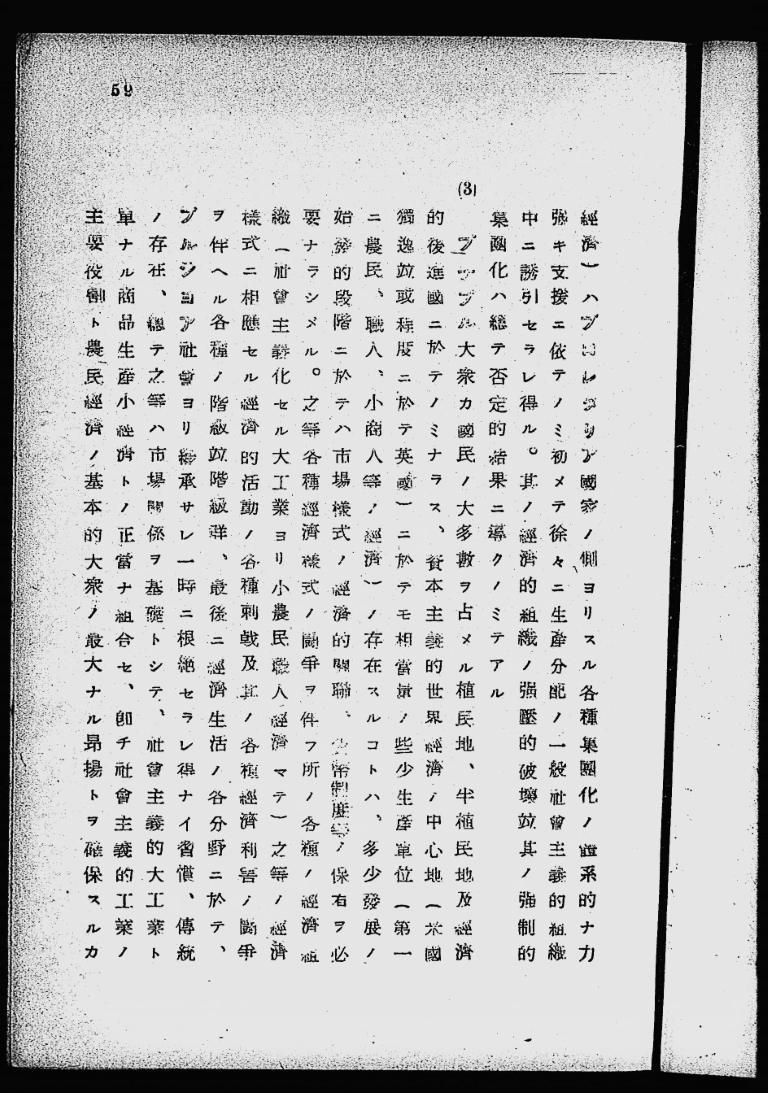 59
經濟）ハプロレタリア國家ノ側ヨリスル各種集團化ノ直系的ナ力
强キ支援ニ依テノミ初メテ徐々ニ生産分配ノ一般社會主義的組織
中ニ誘引セラレ得ル。其ノ經濟的組織ノ强壓的破壞竝其ノ强制的
集團化ハ總テ否定的結果ニ導クノミテアル
(3)
大衆カ國民ノ大多數ヲ占メル植民地、半植民地及經濟
的後進國ニ於テノミナラス、資本主義的世界經濟ノ中心地（米國
獨逸竝或程度ニ於テ英國）ニ於テモ相當量ノ些少生産單位（第一
ニ農民、職人、小商人等ノ經濟）ノ存在スルコトハ、多少發展ノ
始發的段階ニ於テハ市場樣式ノ經濟的關聯、貨幣制度等ノ保有ヲ必
要ナラシメル。之等各種經濟樣式ノ鬪爭ヲ伴フ所ノ各種ノ經濟組
織（社會主義化セル大工業ヨリ小農民職人經濟マテ）之等ノ經濟
樣式ニ相應セル經濟的活動ノ各種刺戟及其ノ各種經濟利害ノ鬪爭
ヲ伴ヘル各種ノ階級竝階級群、最後ニ經濟生活ノ各分野ニ於テ、
ブルジヨア社會ヨリ繼承サレ一時ニ根絕セラレ得ナイ習慣、傳統
ノ存在、總テ之等ハ市場關係ヲ基礎トシテ、社會主義的大工業ト
單ナル商品生産小經濟トノ正當ナ組合セ、卽チ社會主義的工業ノ
主要役割ト農民經濟ノ基本的大衆ノ最大ナル昂揚トヲ確保スルカ